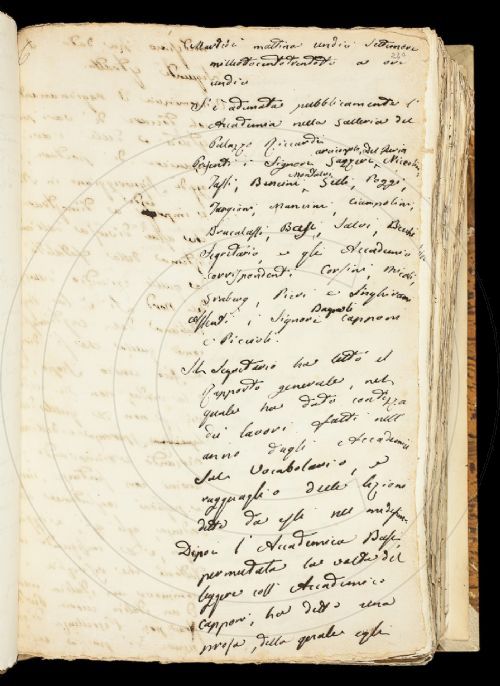 Martedì mattina undici Settembre
milleottocentotrentotto a ore
undici
Si è adunata pubblicamente l'
Accademia nella Galleria del
Palazzo Riccardi
arciconsolo, del Furia
Presenti i Signori Gazzeri, Niccolini,
Montalvi
Tassi, Bencini, Gelli, Poggi,
Targioni, Mancini, Ciampolini,
Brucalassi, Basi, Salvi, Becchi
Segretario, e gli Accademici
corrispondenti Corsini, Micali,
Graberg, Pieri e Inghirami
Bagnoli
assenti i Signori Capponi
e Piccioli.
Il Segretario ha letto il
Rapporto generale, nel
quale ha dato contezza
dei lavori fatti nell'
anno dagli Accademici
sul Vocabolario, e
ragguaglio delle lezioni
dette da essi nel medesimo.
Dipoi l'Accademico Basi,
permutata la volta del
leggere coll'Accademico
Capponi, ha detto una
prosa, della quale egli